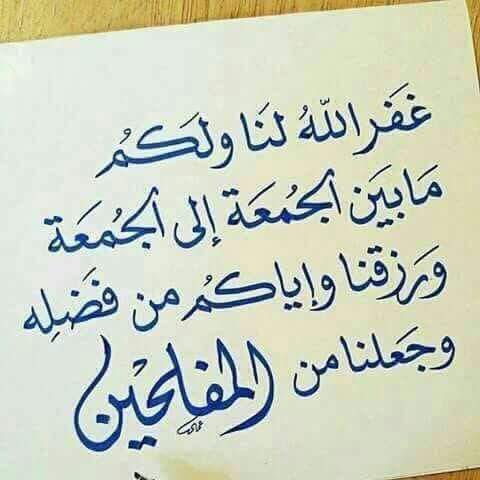 غَفَر اللهُ لنَا ولَكمُ
مَا بيَن الجمُعَة إلى الجمُعَة
وَرزقنا وإياكمُ من فَضَلِه
وجَعلنا من المفلحْين